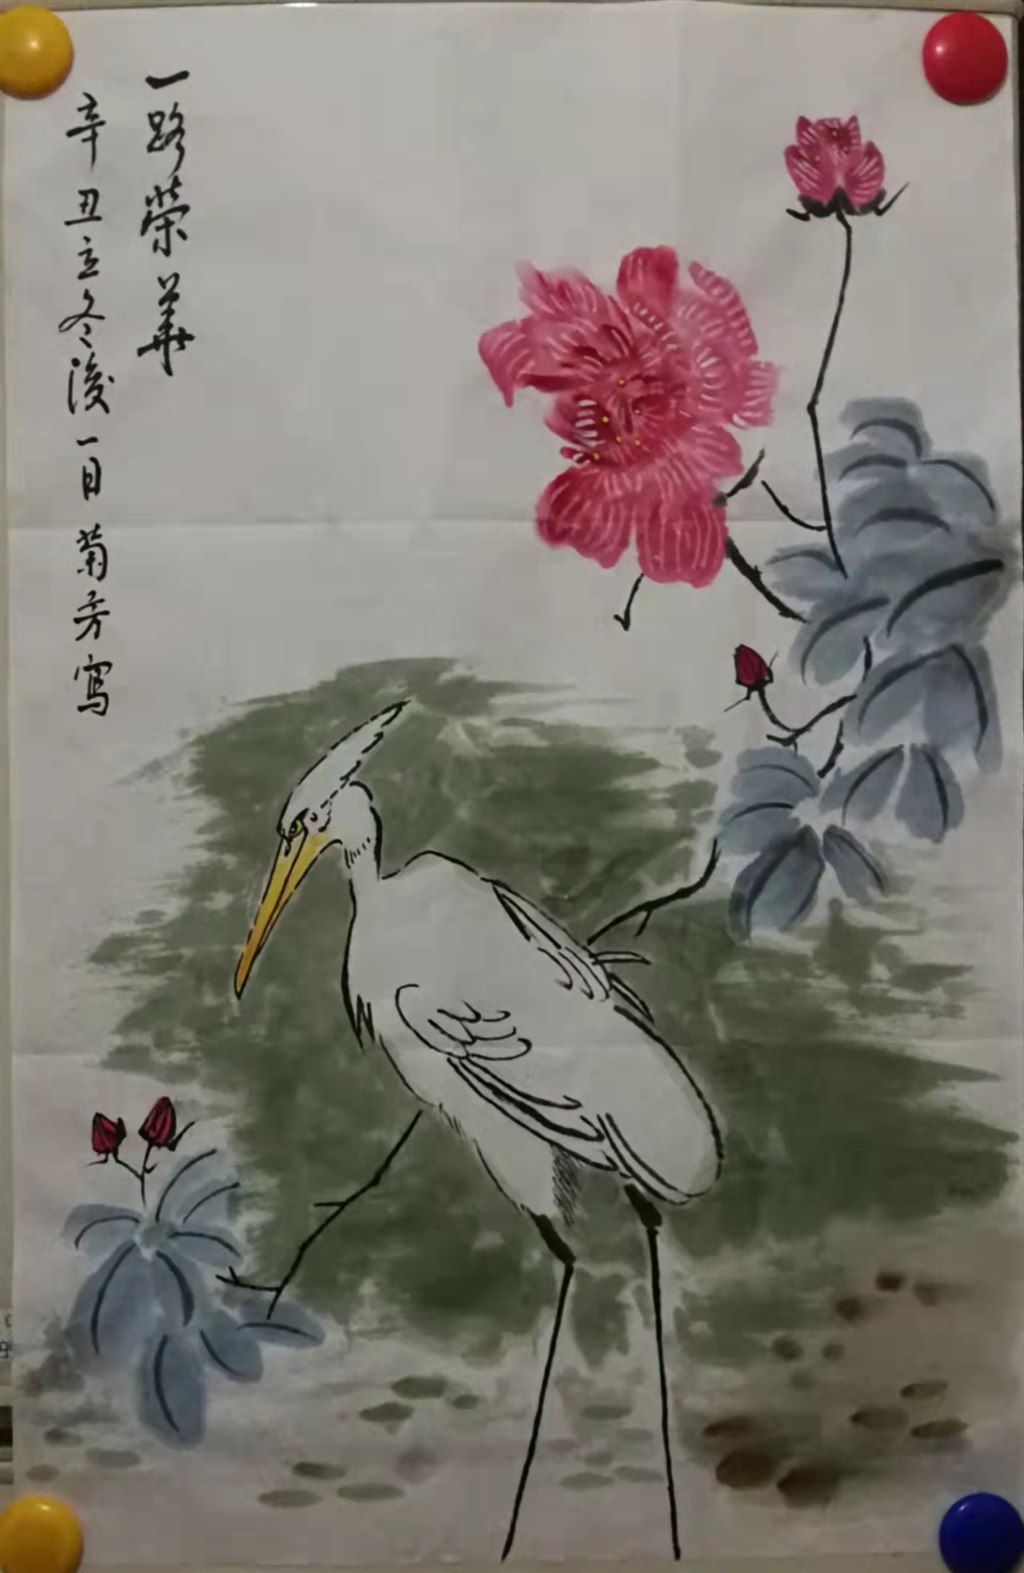 一路榮華
辛丑立冬後一日菊芳寫